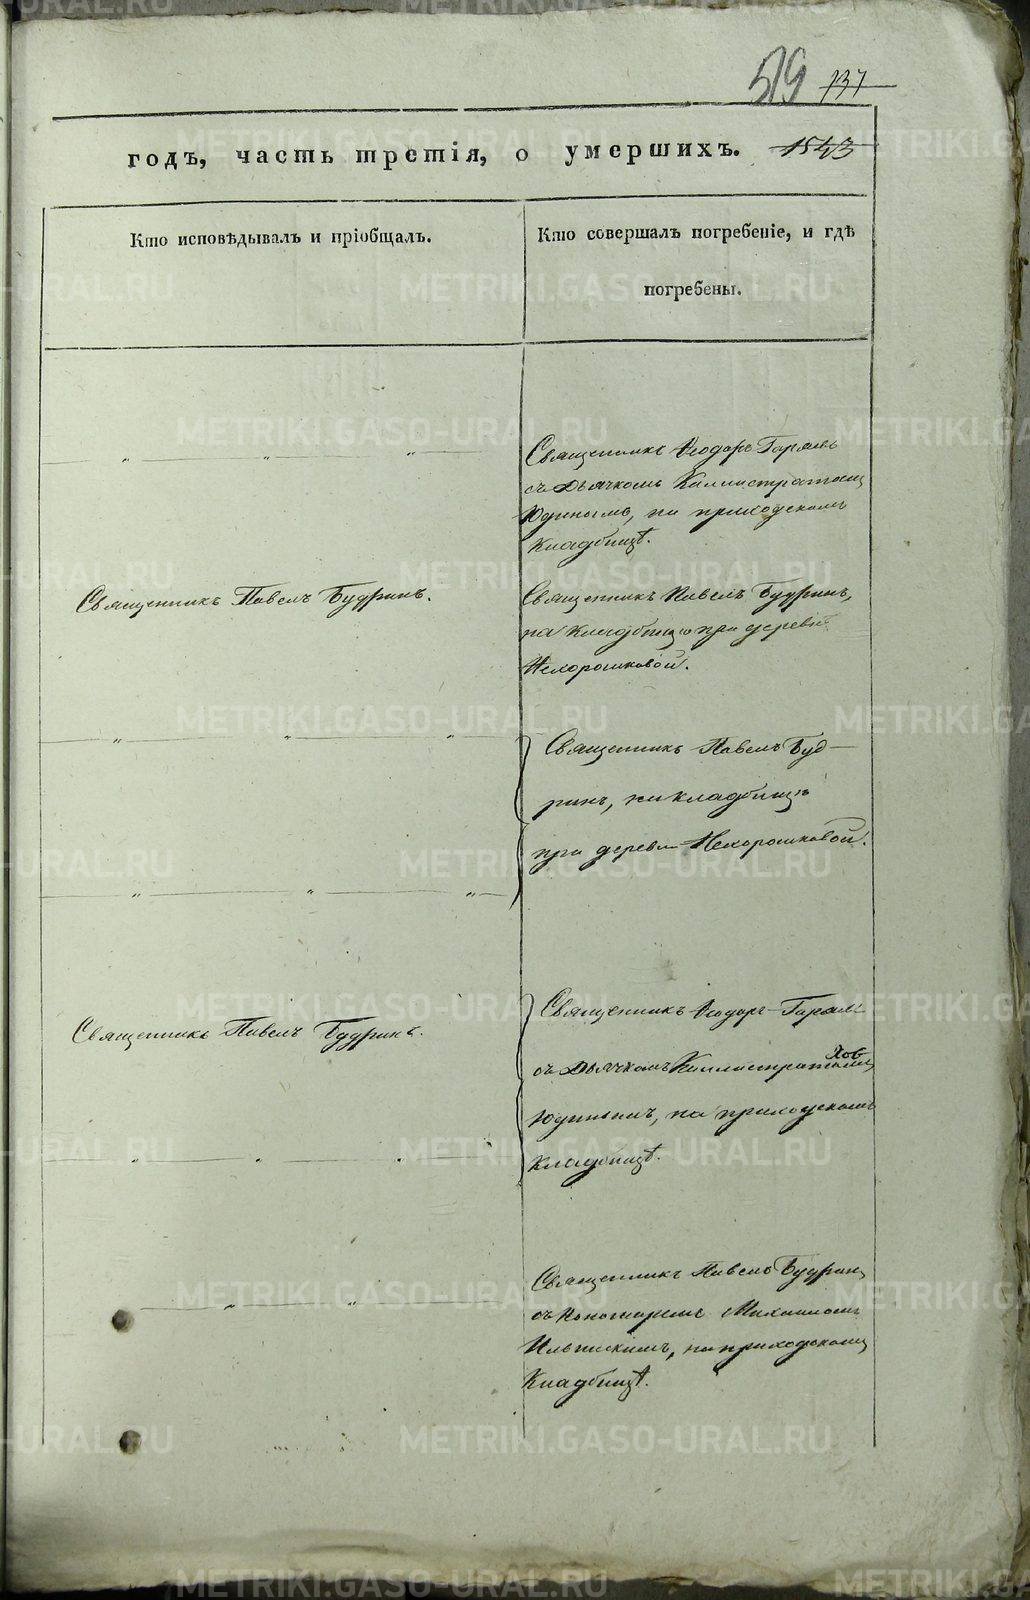 519 137
годъ, часть третія, о умершихъ. 1543
Кто исповѣдывалъ и пріобщалъ.
Кто совершалъ погребеніе, и гдѣ
погребены.
Священникъ Ѳеодоръ
съ Дьячкомъ Каллистратомъ
Юдинымъ, на приходскомъ
Кладбищѣ.
Священникъ Павелъ Будринъ.
Священникъ Павелъ Будринъ,
на Кладбищѣ при деревнѣ
Нехорошковой.
Священникъ Павелъ Буд-
ринъ, на кладбищѣ
при деревнѣ Нехорошковой.
Священникъ Павелъ Будринъ.
Священникъ Ѳеодоръ
съ Дьячкомъ Каллистратомъ
Юдинымъ, на приходскомъ
Кладбищѣ.
Священникъ Павелъ Будринъ,
съ Пономаремъ Михаиломъ
Ильинскимъ, на приходскомъ
Кладбищѣ.
METRIKI.GASO-URAL.RU